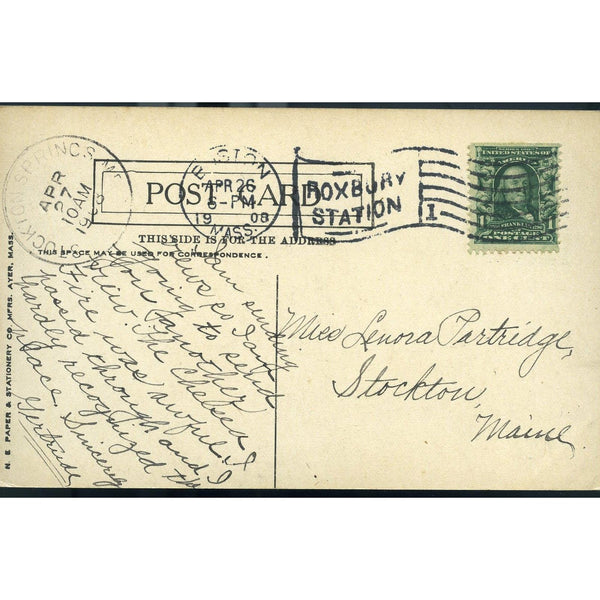 STOCKTON SPRINGS, ME.
APR
27
10AM
1908
BOSTON
APR 26
5-PM
1908
MASS.
ROXBURY
STATION
1
UNITED STATES OF
AMERICA
FRANKLIN
POSTAGE
ONE CENT
POST CARD
THIS SIDE IS FOR THE ADDRESS
THIS SPACE MAY BE USED FOR CORRESPONDENCE.
N. E. PAPER & STATIONERY CO. MFRS. AYER, MASS.
I am sending
views so I am
going to send
you another
view. The Chelsea
fire was awful. I
passed through and I
hardly recognized the
place. Sincerely
Gertrude
Miss Lenora Partridge,
Stockton
Maine.